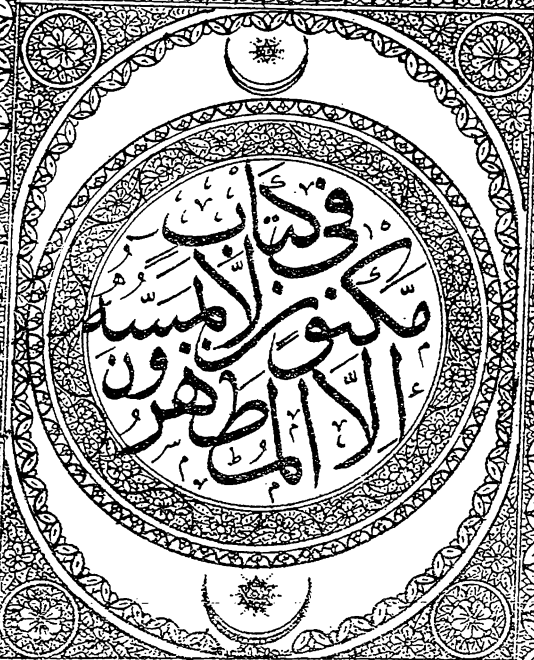 فِي كِتَابٍ
مَّكْنُونٍ لَّا يَمَسُّهُ
إِلَّا الْمُطَهَّرُونَ